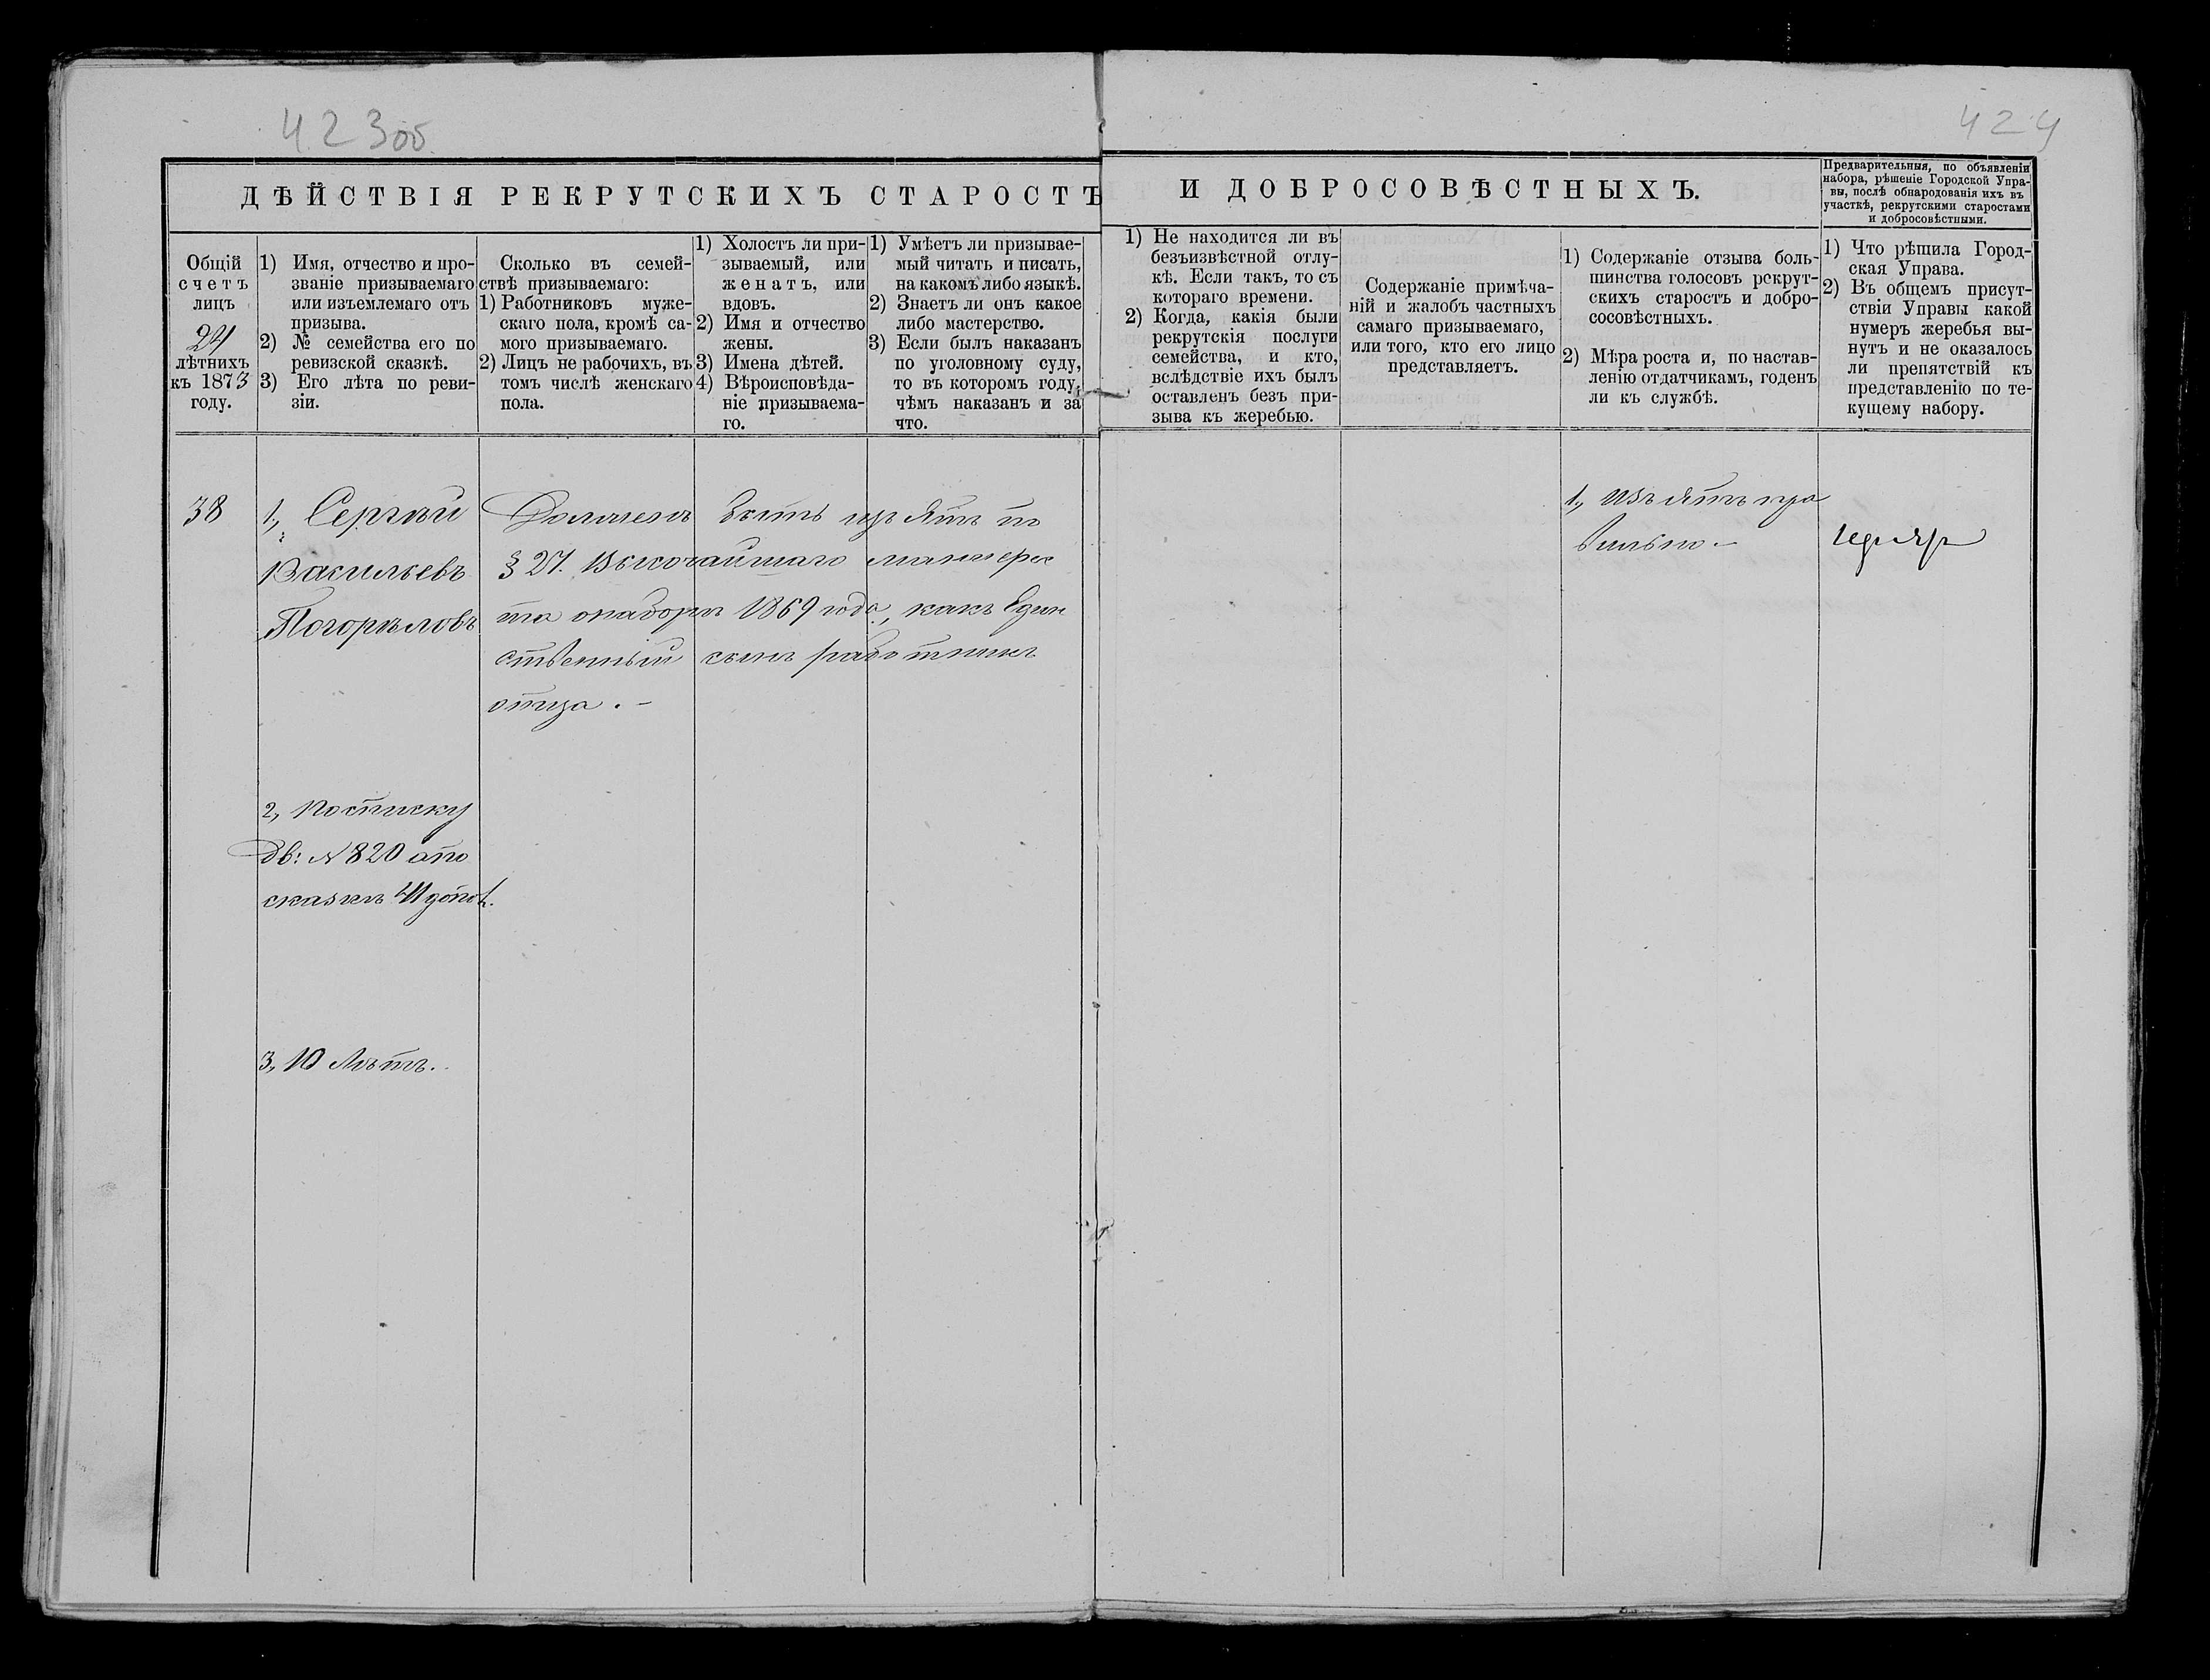 423об.
424
ДѢЙСТВІЯ РЕКРУТСКИХЪ СТАРОСТЪ И ДОБРОСОВѢСТНЫХЪ.
Предварительныя, по объявленіи
набора, рѣшеніе Городской Упра-
вы, послѣ обнародованія ихъ въ
участкѣ, рекрутскими старостами
и добросовѣстными.
Общій
счетъ
лицъ
24
лѣтнихъ
къ 1873
году.
1) Имя, отчество и про-
званіе призываемаго
или изъемлемаго отъ
призыва.
2) № семейства его по
ревизской сказкѣ.
3) Его лѣта по реви-
зіи.
Сколько въ семей-
ствѣ призываемаго:
1) Работниковъ муже-
скаго пола, кромѣ са-
мого призываемаго.
2) Лицъ не рабочихъ, въ
томъ числѣ женскаго
пола.
1) Холостъ ли при-
зываемый, или
женатъ, или
вдовъ.
2) Имя и отчество
жены.
3) Имена дѣтей.
4) Вѣроисповѣда-
ніе призываема-
го.
1) Умѣетъ ли призывае-
мый читать и писать,
на какомъ либо языкѣ.
2) Знаетъ ли онъ какое
либо мастерство.
3) Если былъ наказанъ
по уголовному суду,
то въ которомъ году,
чѣмъ наказанъ и за
что.
1) Не находится ли въ
безъизвѣстной отлу-
кѣ. Если такъ, то съ
котораго времени.
2) Когда, какія были
рекрутскія послуги
семейства, и кто,
вслѣдствіе ихъ былъ
оставленъ безъ при-
зыва къ жеребью.
Содержаніе примѣча-
ній и жалобъ частныхъ
самаго призываемаго,
или того, кто его лицо
представляетъ.
1) Содержаніе отзыва боль-
шинства голосовъ рекрут-
скихъ старостъ и добро-
сосовѣстныхъ.
2) Мѣра роста и, по настав-
ленію отдатчикамъ, годенъ
ли къ службѣ.
1) Что рѣшила Город-
ская Управа.
2) Въ общемъ присут-
ствіи Управы какой
нумеръ жеребья вы-
нутъ и не оказалось
ли препятствій къ
представленію по те-
кущему набору.
38
1., Сергѣй
Васильевъ
Погорѣловъ
2, по списку
Дв: № 820 а по
сказкѣ
3, 10 Лѣтъ.
Долженъ быть изъятъ по
§ 27. Высочайшаго манифес
та о наборѣ 1869 года, какъ Един
ственный сынъ работникъ
отца. –
1., Изъятъ пра
вильно –